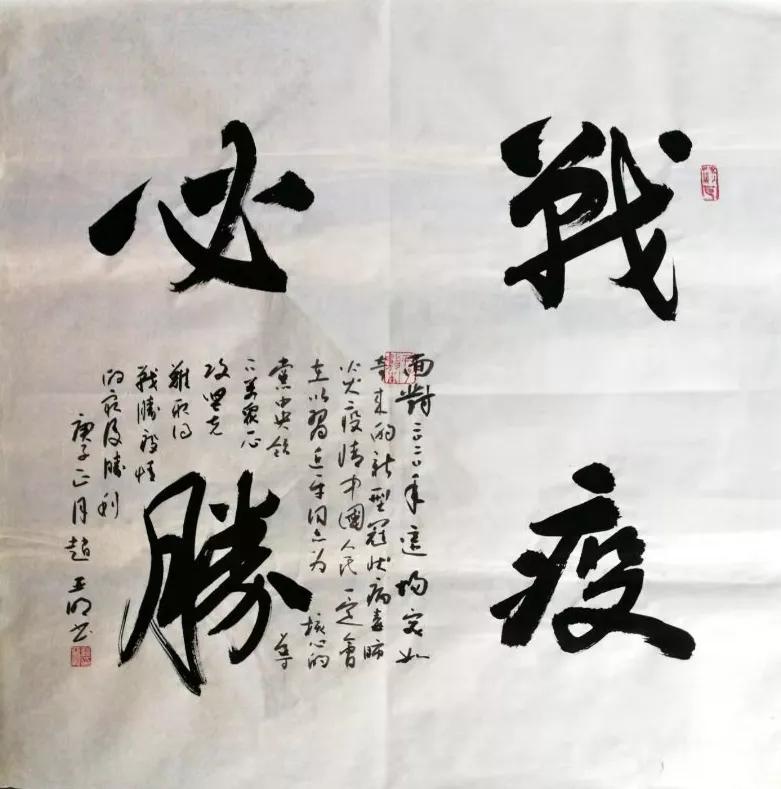 戰疫
必勝
面對二〇二〇年這場突如
其来的新型冠状病毒肺
炎疫情中國人民一定會
在以習近平同志为核心的
黨中央领導
下萬众一心
攻坚克
難取得
戰勝疫情
的最後勝利
庚子正月趙亚明书